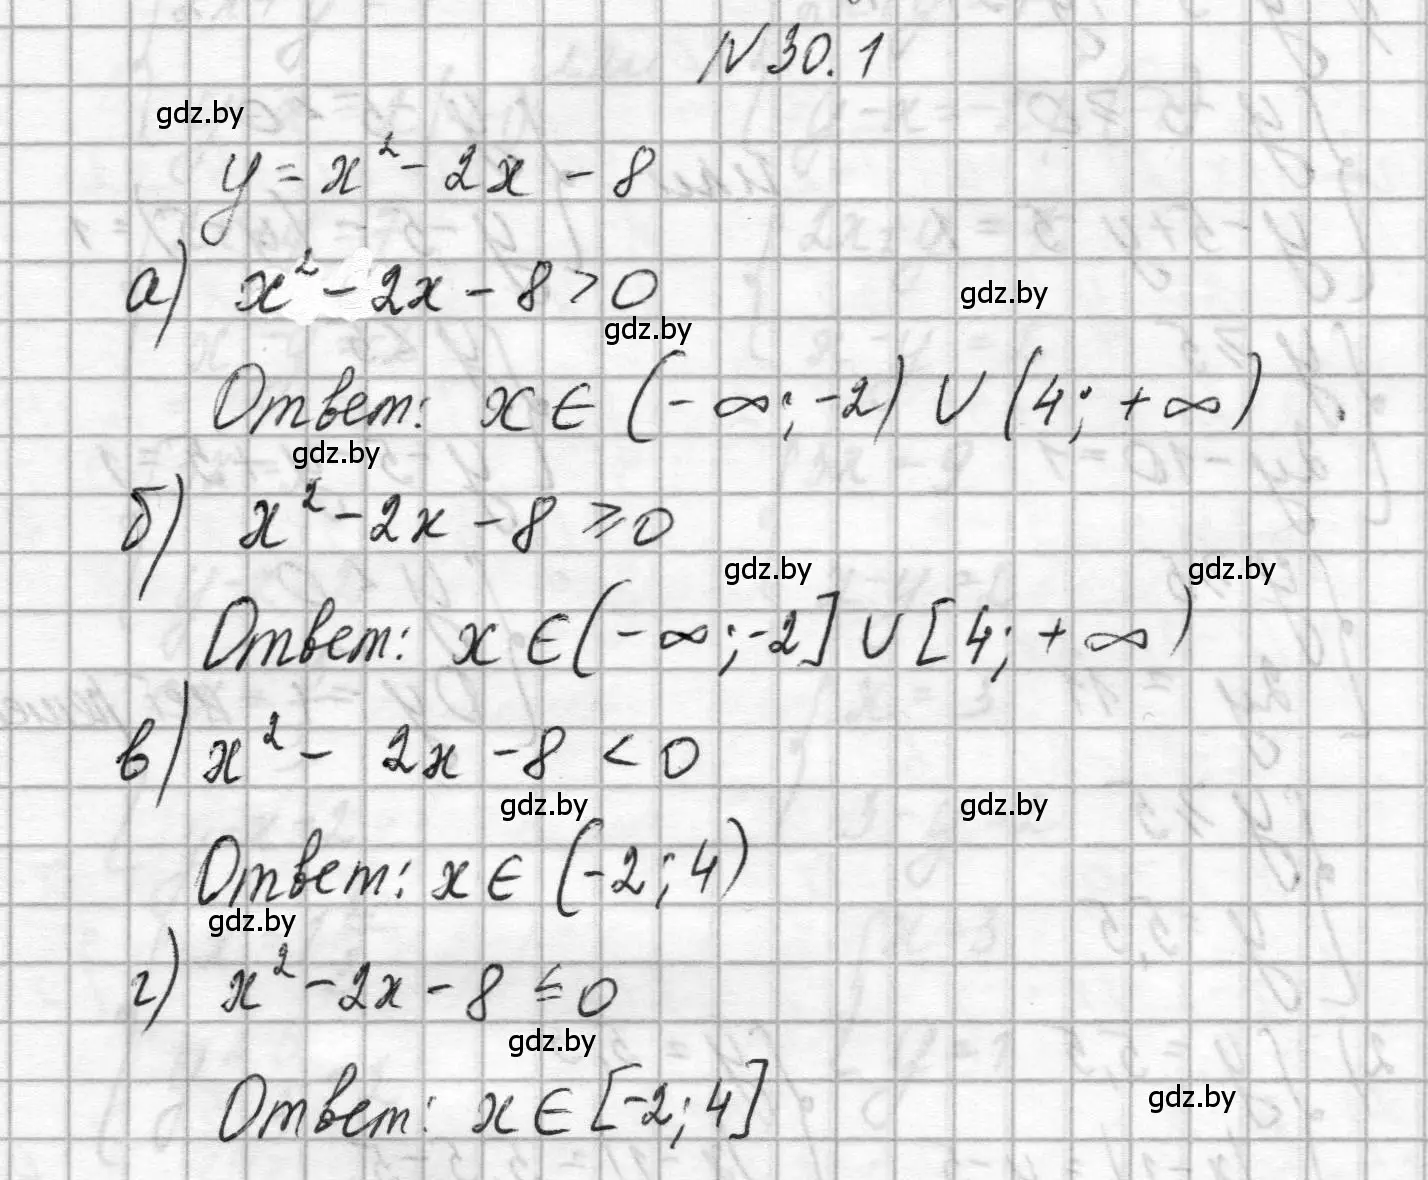 N 30.1
gdz.by
y = x² - 2x - 8
а) x² - 2x - 8 > 0
gdz.by
gdz.by
Ответ: x ∈ (-∞; -2) ∪ (4; +∞).
gdz.by
б) x² - 2x - 8 ≥ 0
gdz.by
gdz.by
Ответ: x ∈ (-∞; -2] ∪ [4; +∞)
в) x² - 2x - 8 < 0
gdz.by
gdz.by
Ответ: x ∈ (-2; 4)
gdz.by
г) x² - 2x - 8 ≤ 0
gdz.by
Ответ: x ∈ [-2; 4]
gdz.by